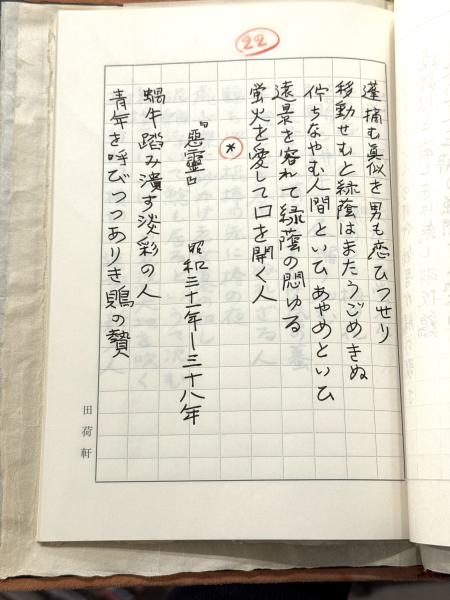 22
蓬摘む眞似を男も恋ひつせり
移動せむと緑蔭はまたうごめきぬ
佇ちなやむ人間といひあやめといひ
遠景を容れて緑蔭の悶ゆる
螢火を愛して口を開く人
*
『惡靈』 昭和三十一年―三十八年
蝸牛踏み潰す淡彩の人
青年を呼びつつありき鵙の贄
田荷軒